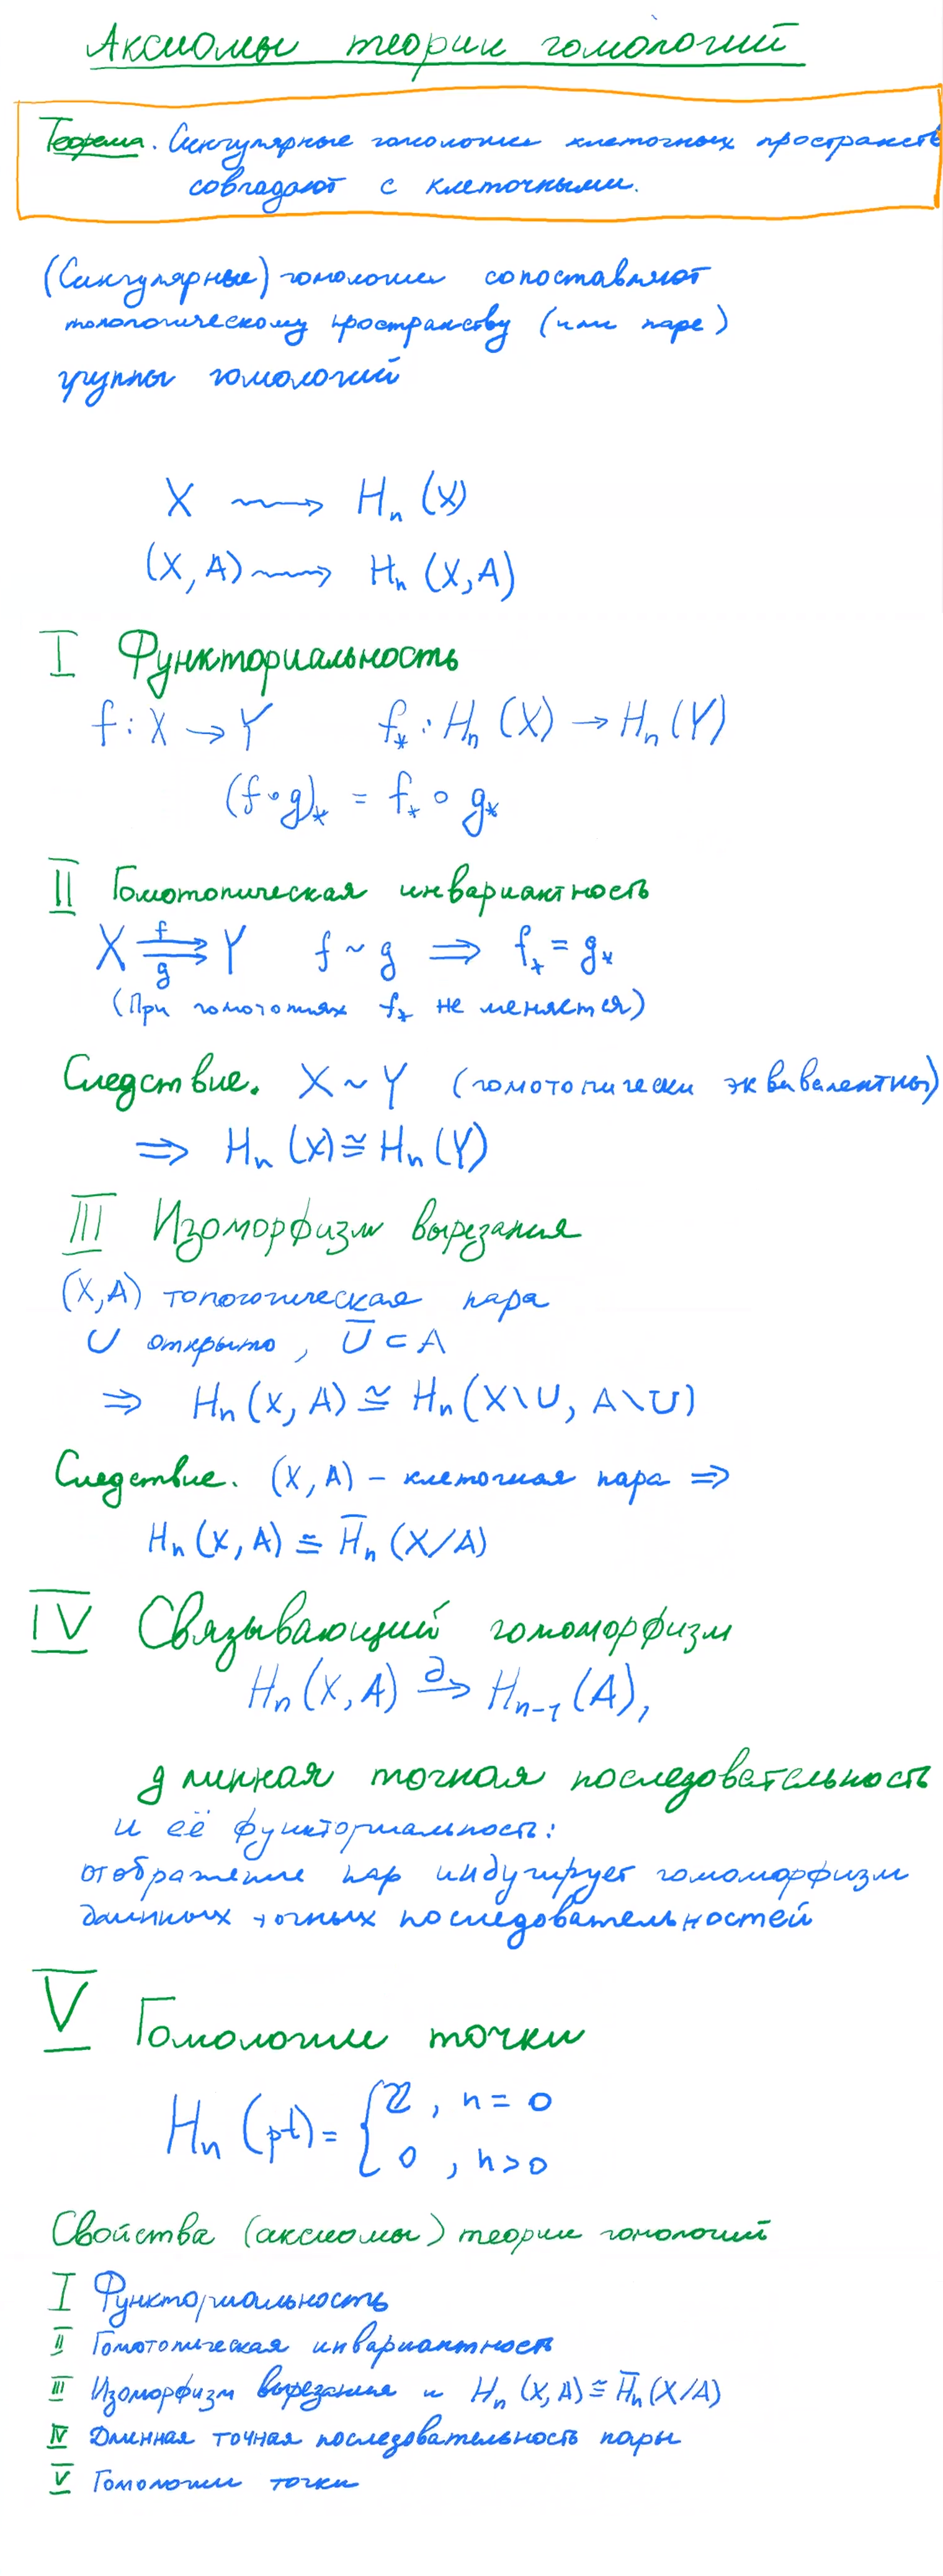 Аксиомы теории гомологий
Теорема. Сингулярные гомологии клеточных пространств
совпадают с клеточными.
(Сингулярные) гомологии сопоставляют
топологическому пространству (или паре)
группы гомологий
X ⟿ Hₙ(X)
(X, A) ⟿ Hₙ(X, A)
I Функториальность
f : X → Y f_* : Hₙ(X) → Hₙ(Y)
(f ∘ g)_* = f_* ∘ g_*
II Гомотопическая инвариантность
X ⇉ Y f ~ g ⟹ f_* = g_*
f
g
(При гомотопиях f_* не меняется)
Следствие. X ~ Y (гомотопически эквивалентны)
⟹ Hₙ(X) ≅ Hₙ(Y)
III Изоморфизм вырезания
(X, A) топологическая пара
U открыто, Ū ⊂ A
⟹ Hₙ(X, A) ≅ Hₙ(X\U, A\U)
Следствие. (X, A) – клеточная пара ⟹
Hₙ(X, A) ≅ H̄ₙ(X/A)
IV Связывающий гомоморфизм
Hₙ(X, A) –∂→ Hₙ₋₁(A),
длинная точная последовательность
и её функториальность:
отображение пар индуцирует гомоморфизм
длинных точных последовательностей
V Гомологии точки
Hₙ(pt) = { ℤ, n = 0
0, n > 0
Свойства (аксиомы) теории гомологий
I Функториальность
II Гомотопическая инвариантность
III Изоморфизм вырезания и Hₙ(X, A) ≅ H̄ₙ(X/A)
IV Длинная точная последовательность пары
V Гомологии точки